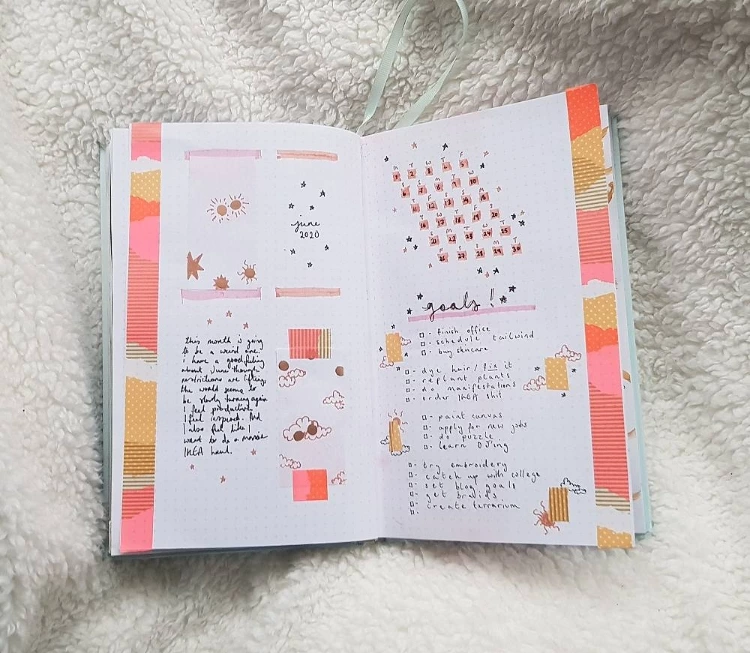 june
2020
this month is going
to be a weird one.
i have a good feeling
about June though.
restrictions are lifting,
the world seems to
be slowly turning again
I feel productive,
I feel inspired. And
I also feel like I
want to do a massive
IKEA haul.
M T W T F
1 2 3 4 5
S S M T W
6 7 8 9 10
T F S S M
11 12 13 14 15
T W T F S
16 17 18 19 20
S M T W T
21 22 23 24 25
F S S M T
26 27 28 29 30
goals!
- finish office
- schedule tailwind
- buy skincare
- dye hair / fix it
- replant plants
- do manifestations
- order IKEA shit
- paint canvas
- apply for new jobs
- do puzzle
- learn DJ'ing
- try embroidery
- catch up with college
- set blog goals
- get braids
- create terrarium